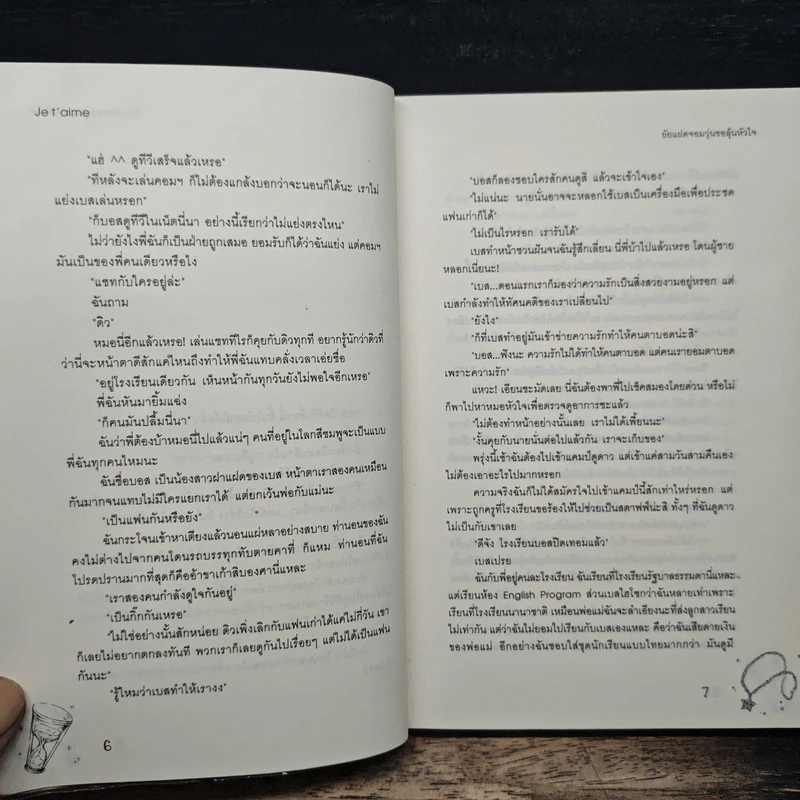 Je t'aime
"แฮ่ ^^ ดูทีวีเสร็จแล้วเหรอ"
"ทีหลังจะเล่นคอมฯ ก็ไม่ต้องแกล้งบอกว่าจะนอนก็ได้นะ เราไม่
แย่งเบสเล่นหรอก"
"ก็บอสดูทีวีในเน็ตนี่นา อย่างนี้เรียกว่าไม่แย่งตรงไหน"
ไม่ว่ายังไงพี่ฉันก็เป็นฝ่ายถูกเสมอ ยอมรับก็ได้ว่าฉันแย่ง แต่คอมฯ
มันเป็นของพี่คนเดียวหรือไง
"แชทกับใครอยู่ล่ะ"
ฉันถาม
"ดิว"
หมอนี่อีกแล้วเหรอ! เล่นแชททีไรก็คุยกับดิวทุกที อยากรู้นักว่าดิวที่
ว่านี่จะหน้าตาดีสักแค่ไหนถึงทำให้พี่ฉันแทบคลั่งเวลาเอ่ยชื่อ
"อยู่โรงเรียนเดียวกัน เห็นหน้ากันทุกวันยังไม่พอใจอีกเหรอ"
พี่ฉันหันมายิ้มแฉ่ง
"ก็คนมันปลื้มนี่นา"
ฉันว่าพี่ต้องบ้าหมอนี่ไปแล้วแน่ๆ คนที่อยู่ในโลกสีชมพูจะเป็นแบบ
พี่ฉันทุกคนไหมนะ
ฉันชื่อบอส เป็นน้องสาวฝาแฝดของเบส หน้าตาเราสองคนเหมือน
กันมากจนแทบไม่มีใครแยกเราได้ แต่ยกเว้นพ่อกับแม่นะ
"เป็นแฟนกันหรือยัง"
ฉันกระโจนเข้าหาเตียงแล้วนอนแผ่หลาอย่างสบาย ท่านอนของฉัน
คงไม่ต่างไปจากคนโดนรถบรรทุกทับตายคาที่ ก็แหม ท่านอนที่ฉัน
โปรดปรานมากที่สุดก็คืออ้าขาเก้าสิบองศานี่แหละ
"เราสองคนกำลังดูใจกันอยู่"
"เป็นกิ๊กกันเหรอ"
"ไม่ใช่อย่างนั้นสักหน่อย ดิวเพิ่งเลิกกับแฟนเก่าได้แค่ไม่กี่วัน เขา
ก็เลยไม่อยากตกลงทันที พวกเราก็เลยดูกันไปเรื่อยๆ แต่ไม่ได้เป็นแฟน
กันนะ"
"รู้ไหมว่าเบสทำให้เรางง"
6
ยัยแฝดจอมวุ่นขอลุ้นหัวใจ
"บอสก็ลองชอบใครสักคนดูสิ แล้วจะเข้าใจเอง"
"ไม่แน่นะ นายนั่นอาจจะหลอกใช้เบสเป็นเครื่องมือเพื่อประชด
แฟนเก่าก็ได้"
"ไม่เป็นไรหรอก เรารับได้"
เบสทำหน้าชวนฝันจนฉันรู้สึกเลี่ยน นี่พี่บ้าไปแล้วเหรอ โดนผู้ชาย
หลอกเนี่ยนะ!
"เบส...ตอนแรกเราก็มองว่าความรักเป็นสิ่งสวยงามอยู่หรอก แต่
เบสกำลังทำให้ทัศนคติของเราเปลี่ยนไป"
"ยังไง"
"ก็ที่เบสทำอยู่มันเข้าข่ายความรักทำให้คนตาบอดน่ะสิ"
"บอส...ฟังนะ ความรักไม่ได้ทำให้คนตาบอด แต่คนเรายอมตาบอด
เพราะความรัก"
แหวะ! เอียนชะมัดเลย นี่ฉันต้องพาพี่ไปเช็คสมองโดยด่วน หรือไม่
ก็พาไปหาหมอหัวใจเพื่อตรวจดูอาการซะแล้ว
"ไม่ต้องทำหน้าอย่างนั้นเลย เราไม่ได้เพี้ยนนะ"
"งั้นคุยกับนายนั่นต่อไปแล้วกัน เราจะเก็บของ"
พรุ่งนี้เช้าฉันต้องไปเข้าแคมป์ดูดาว แต่เข้าแค่สามวันสามคืนเอง
ไม่ต้องเอาอะไรไปมากหรอก
ความจริงฉันก็ไม่ได้สมัครใจไปเข้าแคมป์นี้สักเท่าไหร่หรอก แต่
เพราะถูกครูที่โรงเรียนขอร้องให้ไปช่วยเป็นสตาฟฟ์น่ะสิ ทั้งๆ ที่ฉันดูดาว
ไม่เป็นกับเขาเลย
"ดีจัง โรงเรียนบอสปิดเทอมแล้ว"
เบสเปรย
ฉันกับพี่อยู่คนละโรงเรียน ฉันเรียนที่โรงเรียนรัฐบาลธรรมดานี่แหละ
แต่เรียนห้อง English Program ส่วนเบสไฮโซกว่าฉันหลายเท่าเพราะ
เรียนที่โรงเรียนนานาชาติ เหมือนพ่อแม่ฉันจะลำเอียงนะที่ส่งลูกสาวเรียน
ไม่เท่ากัน แต่ว่าฉันไม่ยอมไปเรียนกับเบสเองแหละ คือว่าฉันเสียดายเงิน
ของพ่อแม่ อีกอย่างฉันชอบใส่ชุดนักเรียนแบบไทยมากกว่า มันดูมี
7